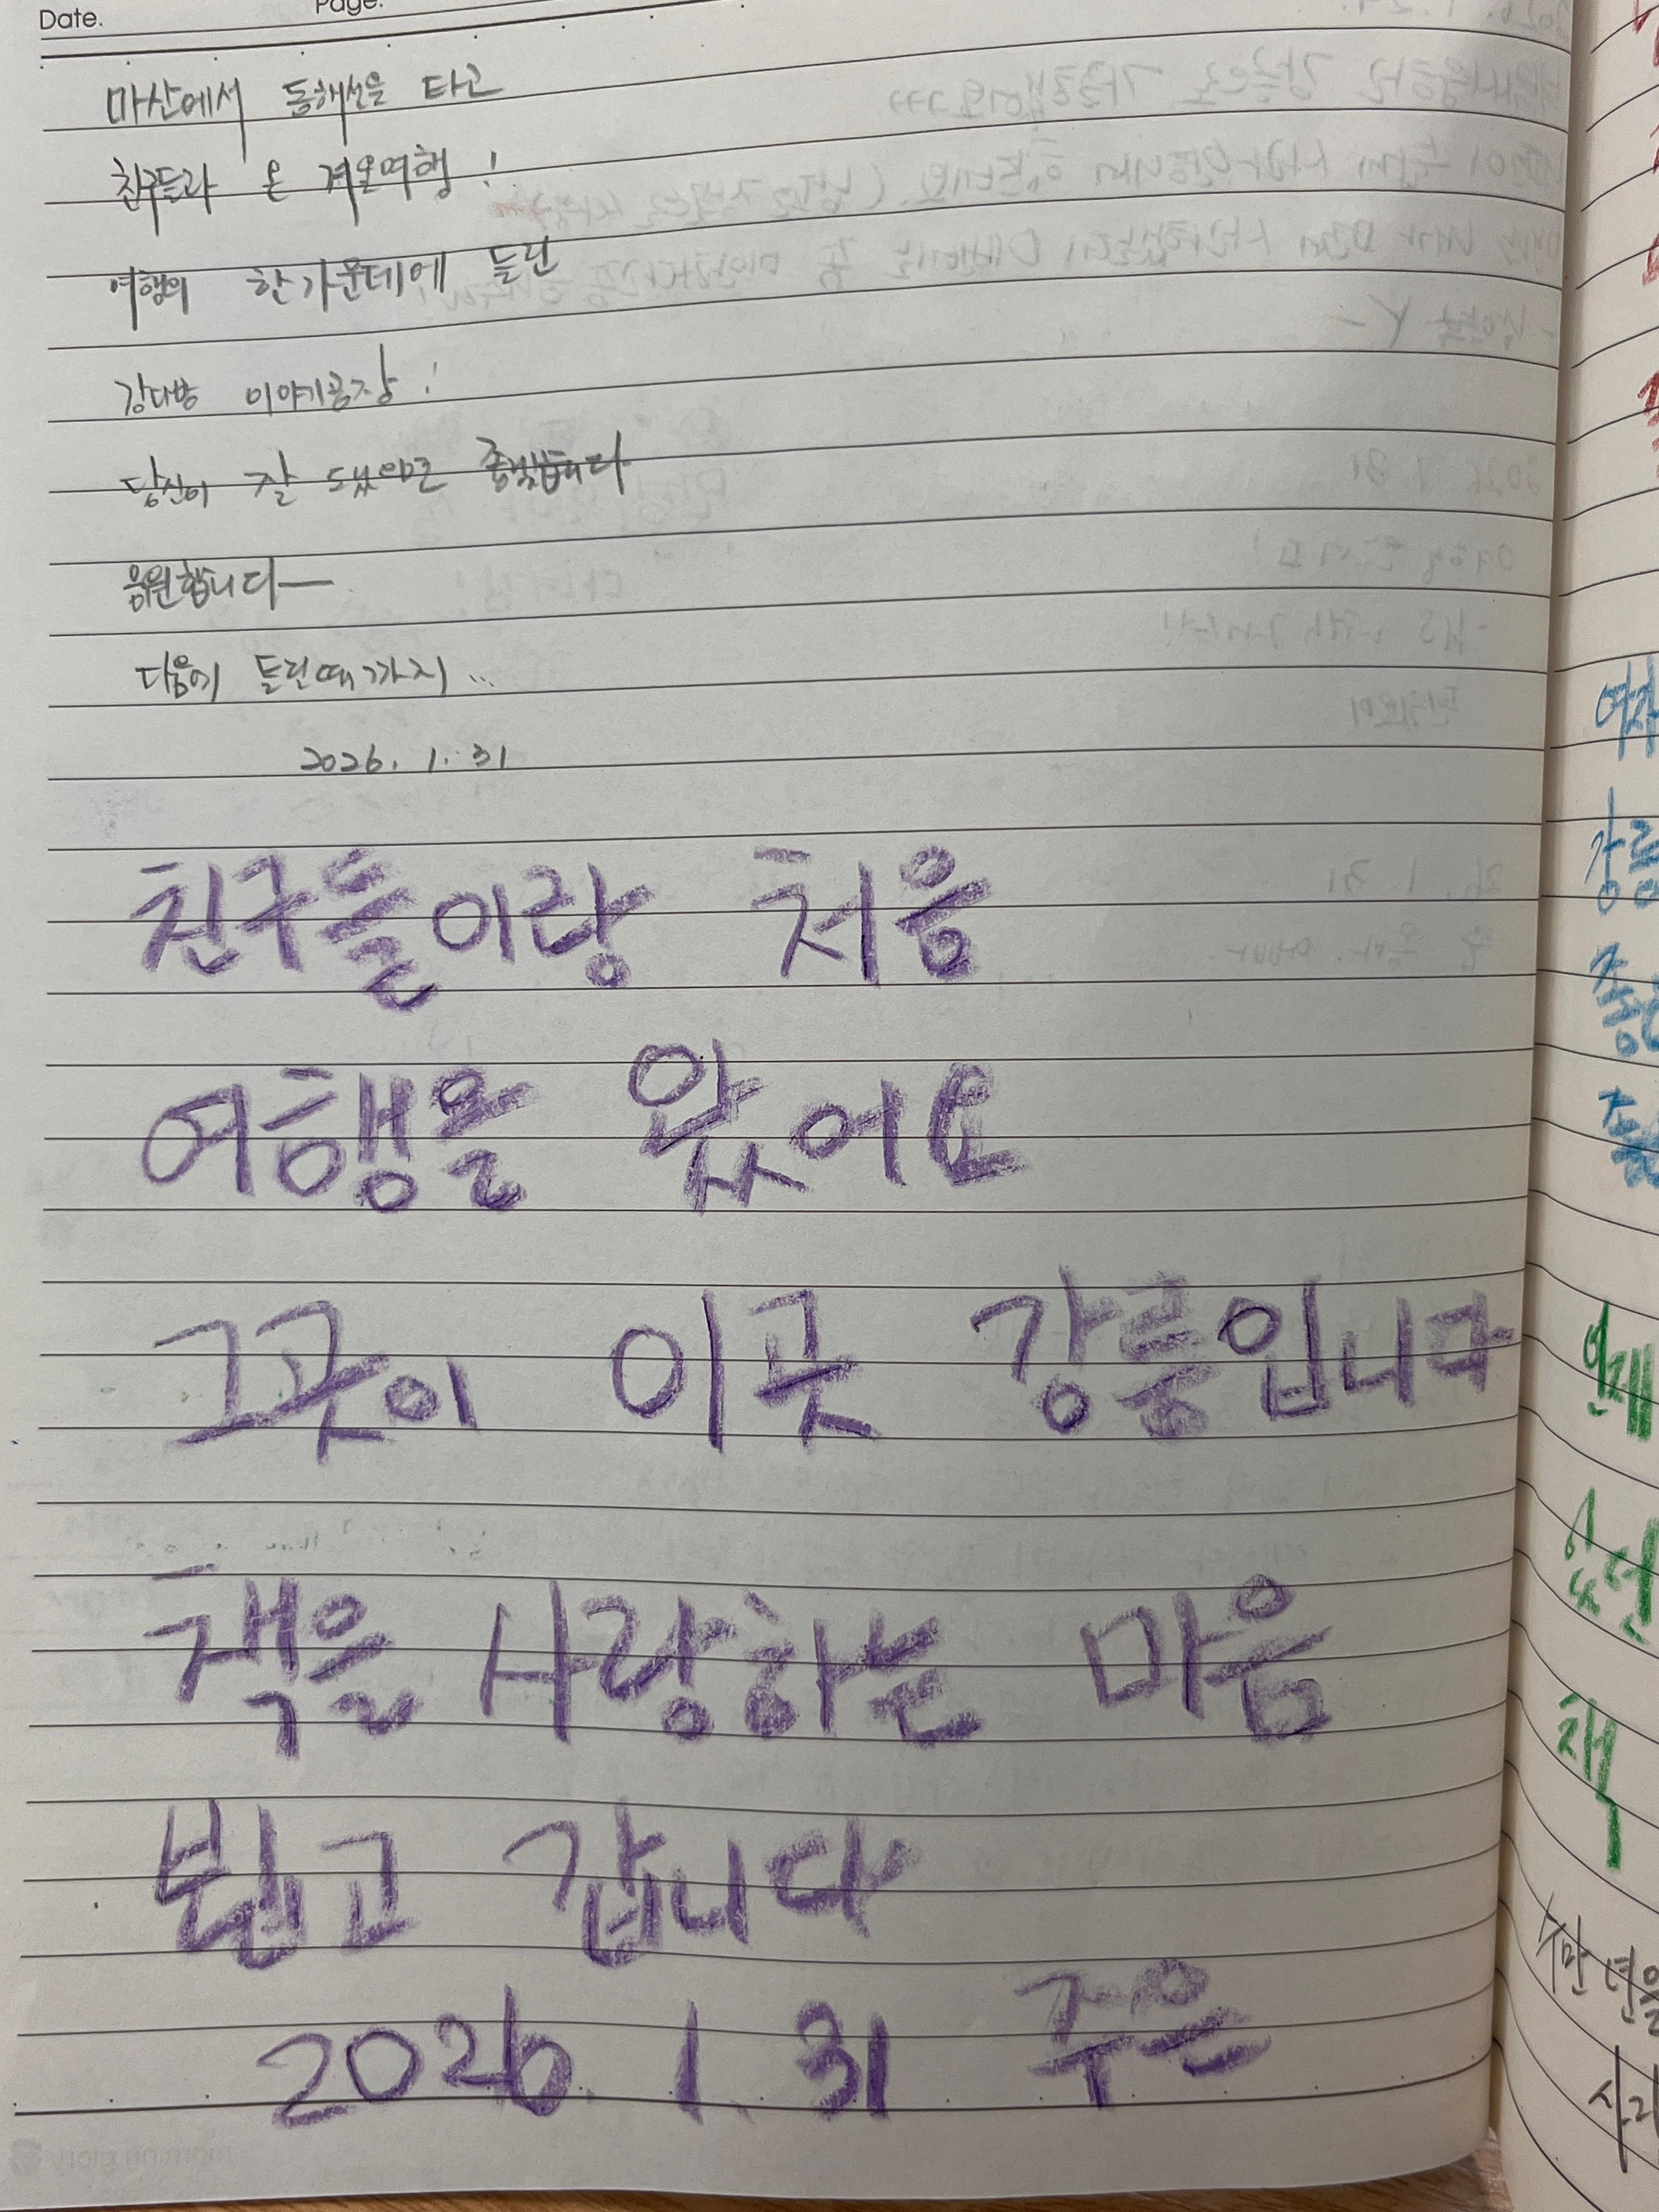 Date.
Page.
마산에서 동해선을 타고
친구들과 온 겨울여행!
여행의 한가운데에 들린
강다방 이야기공장!
당신이 잘 됐으면 좋겠습니다
응원합니다―
다음에 들릴때까지...
2026. 1. 31
친구들이랑 처음
여행을 왔어요
그곳이 이곳 강릉입니다
책을 사랑하는 마음
뵙고 갑니다
2026. 1. 31 주은
여자
강릉
좋은
언제
책
수만 년을